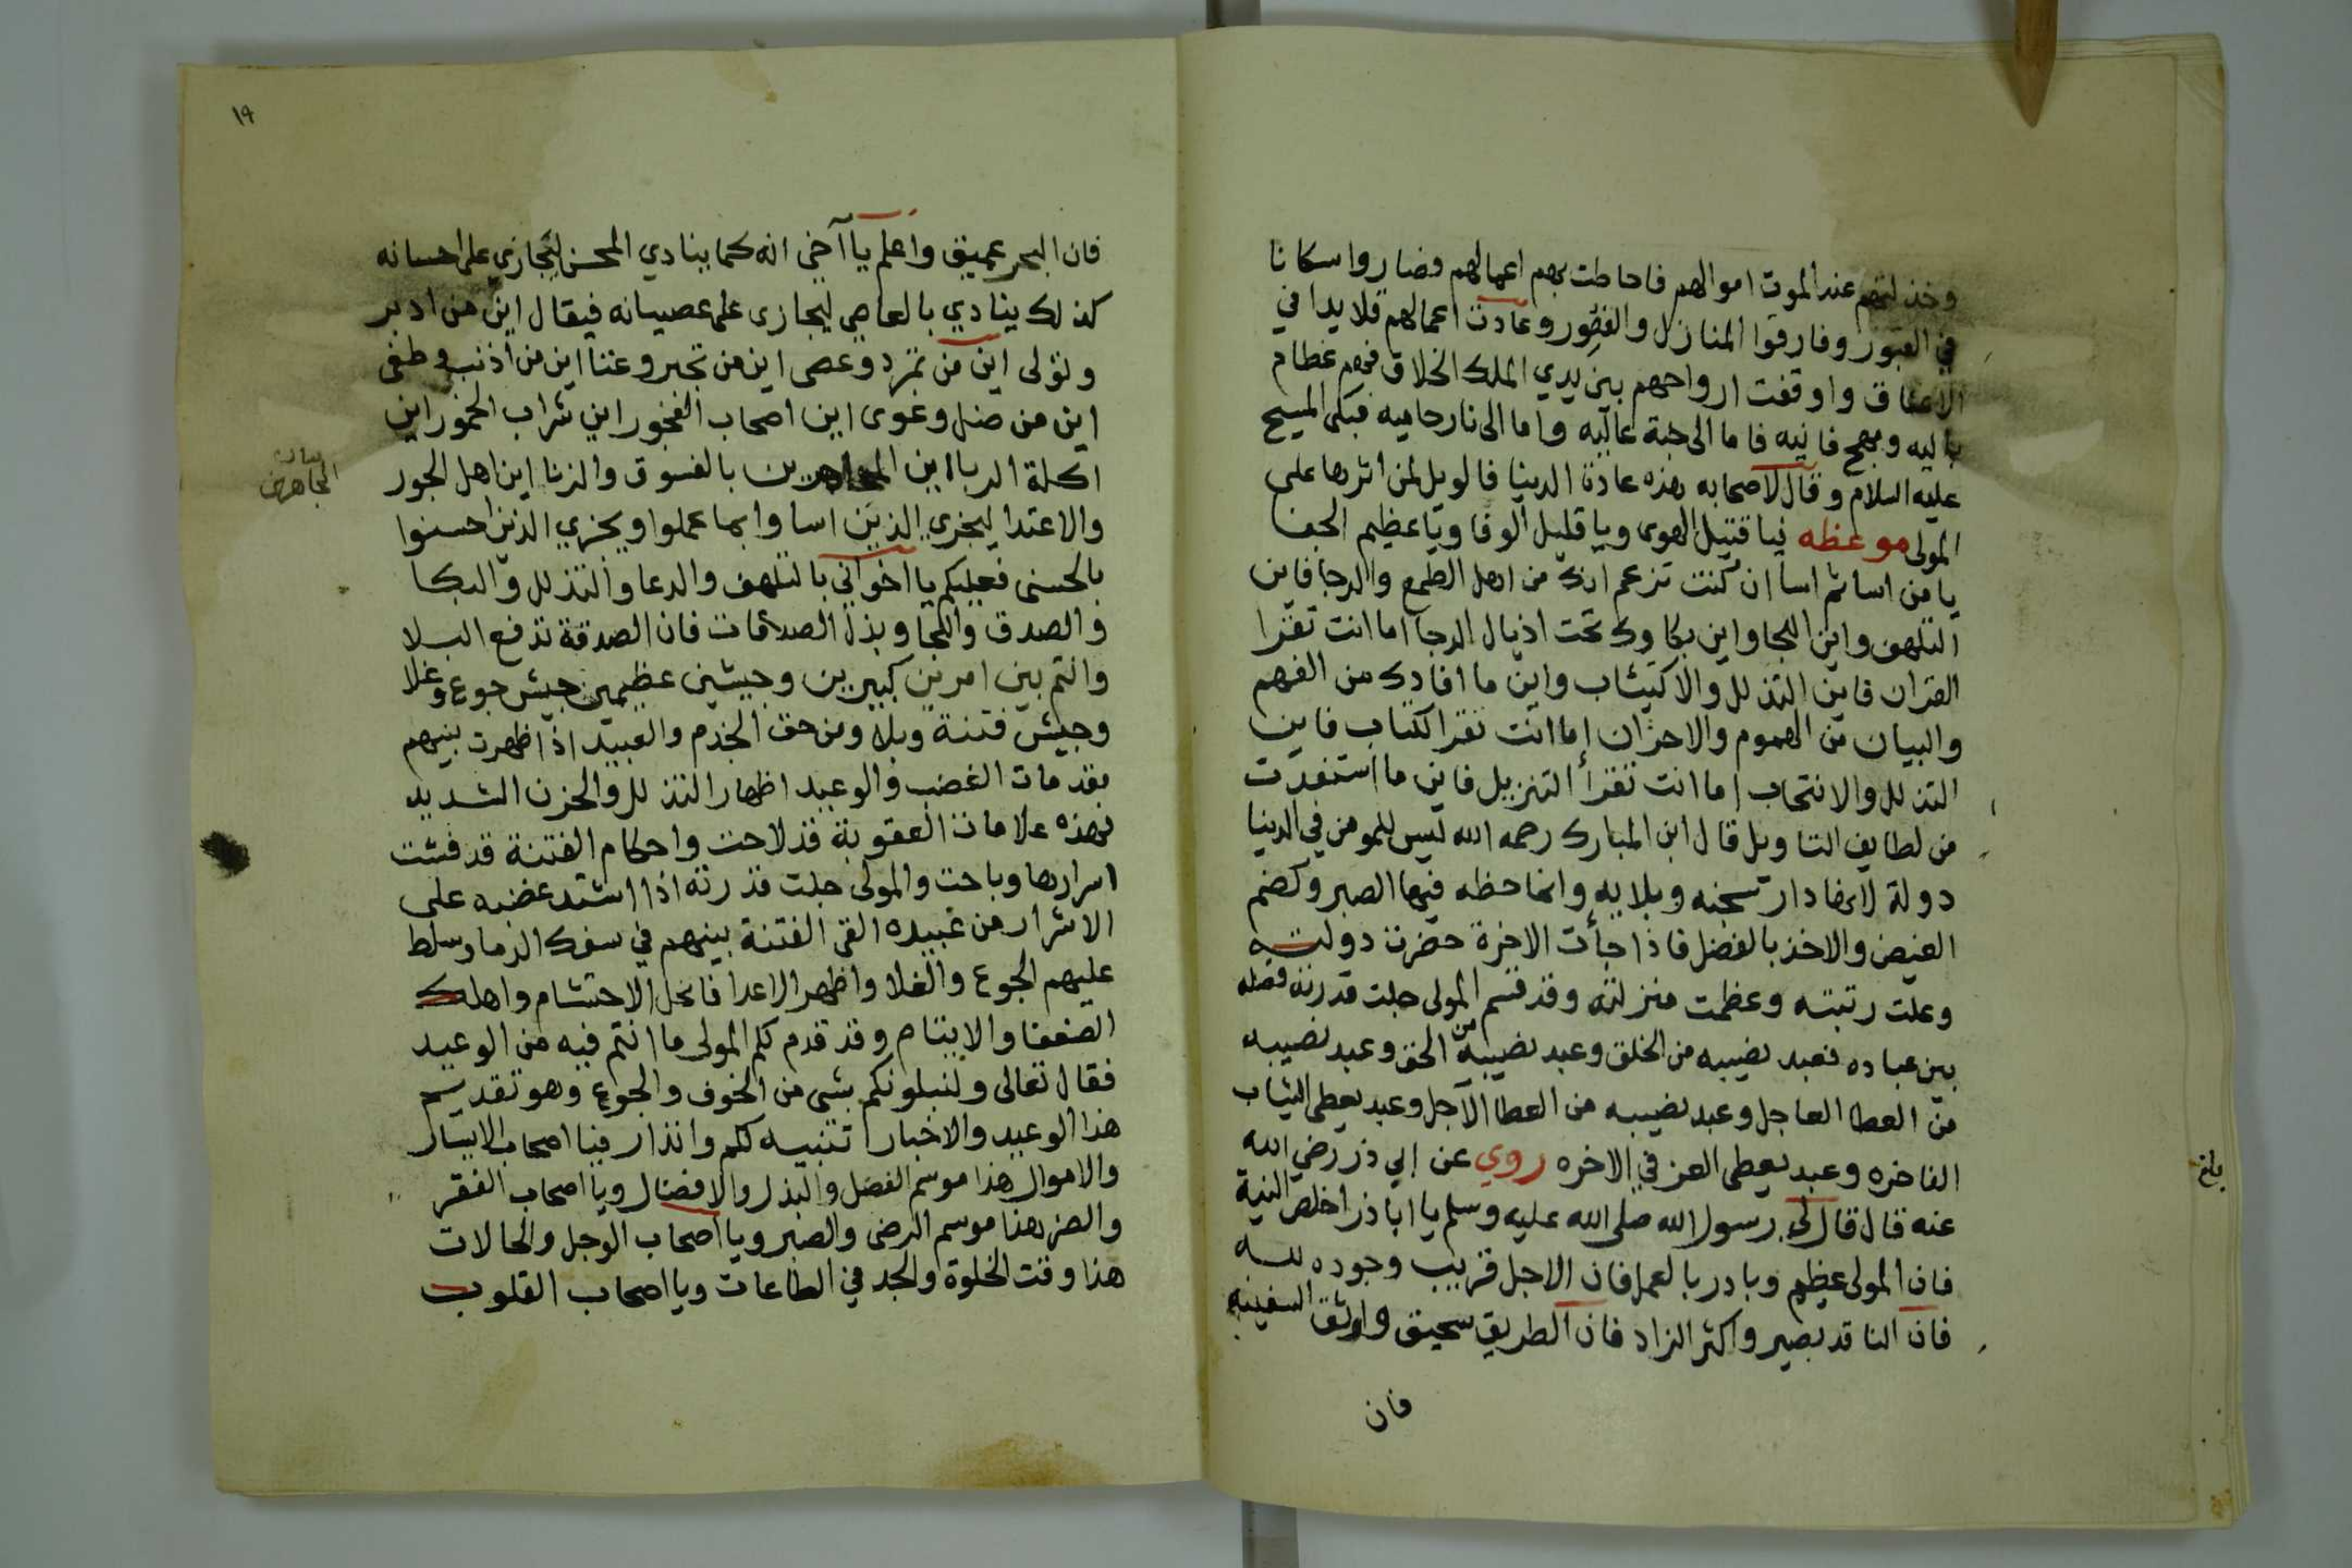 وخذلتهم عند الموت اموالهم فاحاطت بهم اعمالهم فصاروا سكانا
في القبور وفارقوا المنازل والقصور وعادت اعمالهم قلايدا في
الاعناق واوقفت ارواحهم بين يدي الملك الخلاق فهم عظام
باليه ومهج فانيه فاما الى جنة عاليه واما الى نار حاميه فبكى المسيح
عليه السلام وقال لاصحابه هذه عادة الدنيا فالويل لمن اثرها على
المولى موعظه فيا قتيل الهوى ويا قليل الوفا ويا عظيم الجفا
يا من اسا ثم اسا ان كنت تزعم انك من اهل الطمع والرجا فاين
التلهف واين اللجا واين بكاوك تحت اذيال الدجا اما انت تقرا
القران فاين التذلل والاكتيئاب واين ما افادك من الفهم
والبيان من الهموم والاحزان اما انت تقرا الكتاب فاين
التذلل والانتحاب اما انت تقرأ التنزيل فاين ما استفدت
من لطايف التاويل قال ابن المبارك رحمه الله ليس للمومن في الدنيا
دولة لانها دار سجنه وبلايه وانما حظه فيها الصبر وكضم
الغيض والاخذ بالفضل فاذا جأت الاخرة حضرت دولته
وعلت رتبته وعظمت منزلته وقد قسم المولى جلت قدرته فضله
بين عباده فعبد نصيبه من الخلق وعبد نصيبه من الحق وعبد نصيبه
من العطا العاجل وعبد نصيبه من العطا الآجل وعبد يعطى الثياب
الفاخره وعبد يعطى العز في الاخره روي عن ابي ذر رضي الله
عنه قال قال لي رسول الله صلى الله عليه وسلم يا اباذر اخلص النية
فان المولى عظيم وبادر بالعمل فان الاجل قريب وجوده لله
فان الناقد بصير واكثر الزاد فان الطريق سحيق واوثق السفينه
فان
١٩
فان البحر عميق واعلم يا آخي انه كما ينادي المحسن ليجازي على احسانه
كذلك ينادي بالعاصي ليجازى على عصيانه فيقال اين من ادبر
وتولى اين من تمرد وعصى اين من تجبر وعتا اين من أذنب وطغى
اين من ضل وغوى اين اصحاب الفجور اين شراب الخمور اين
اكلة الربا اين المجاهرين بالفسوق والزنا اين اهل الجور
بيان
المجاهرين
والاعتدا ليجزي الذين اساوا بما عملوا ويجزي الذين احسنوا
بالحسنى فعليكم يا اخواني بالتلهف والدعا والتذلل والبكا
والصدق واللجا وبذل الصدقات فان الصدقة تدفع البلا
وانتم بين امرين كبيرين وجيشين عظيمين جيش جوع وغلا
وجيش فتنة وبلا ومن حق الخدم والعبيد اذا ظهرت بينهم
مقدمات الغضب والوعيد اظهار التذلل والحزن الشديد
فهذه علامات العقوبة قد لاحت واحكام الفتنة قد فشت
اسرارها وباحت والمولى جلت قدرته اذا اشتد غضبه على
الاشرار من عبيده القى الفتنة بينهم في سفك الدما وسلط
عليهم الجوع والغلا واظهر الاعدا فانحل الاحتشام واهلك
الضعفا والايتام وقد قدم لكم المولى ما انتم فيه من الوعيد
فقال تعالى ولنبلونكم بشى من الخوف والجوع وهو تقديم
هذا الوعيد والاخبار تنبيه لكم وانذار فيا اصحاب الايسار
والاموال هذا موسم الفضل والبذل والافضال ويا اصحاب الفقر
والضر هذا موسم الرضى والصبر ويا اصحاب الوجل والحالات
هذا وقت الخلوة والجد في الطاعات ويا اصحاب القلوب
بلغ